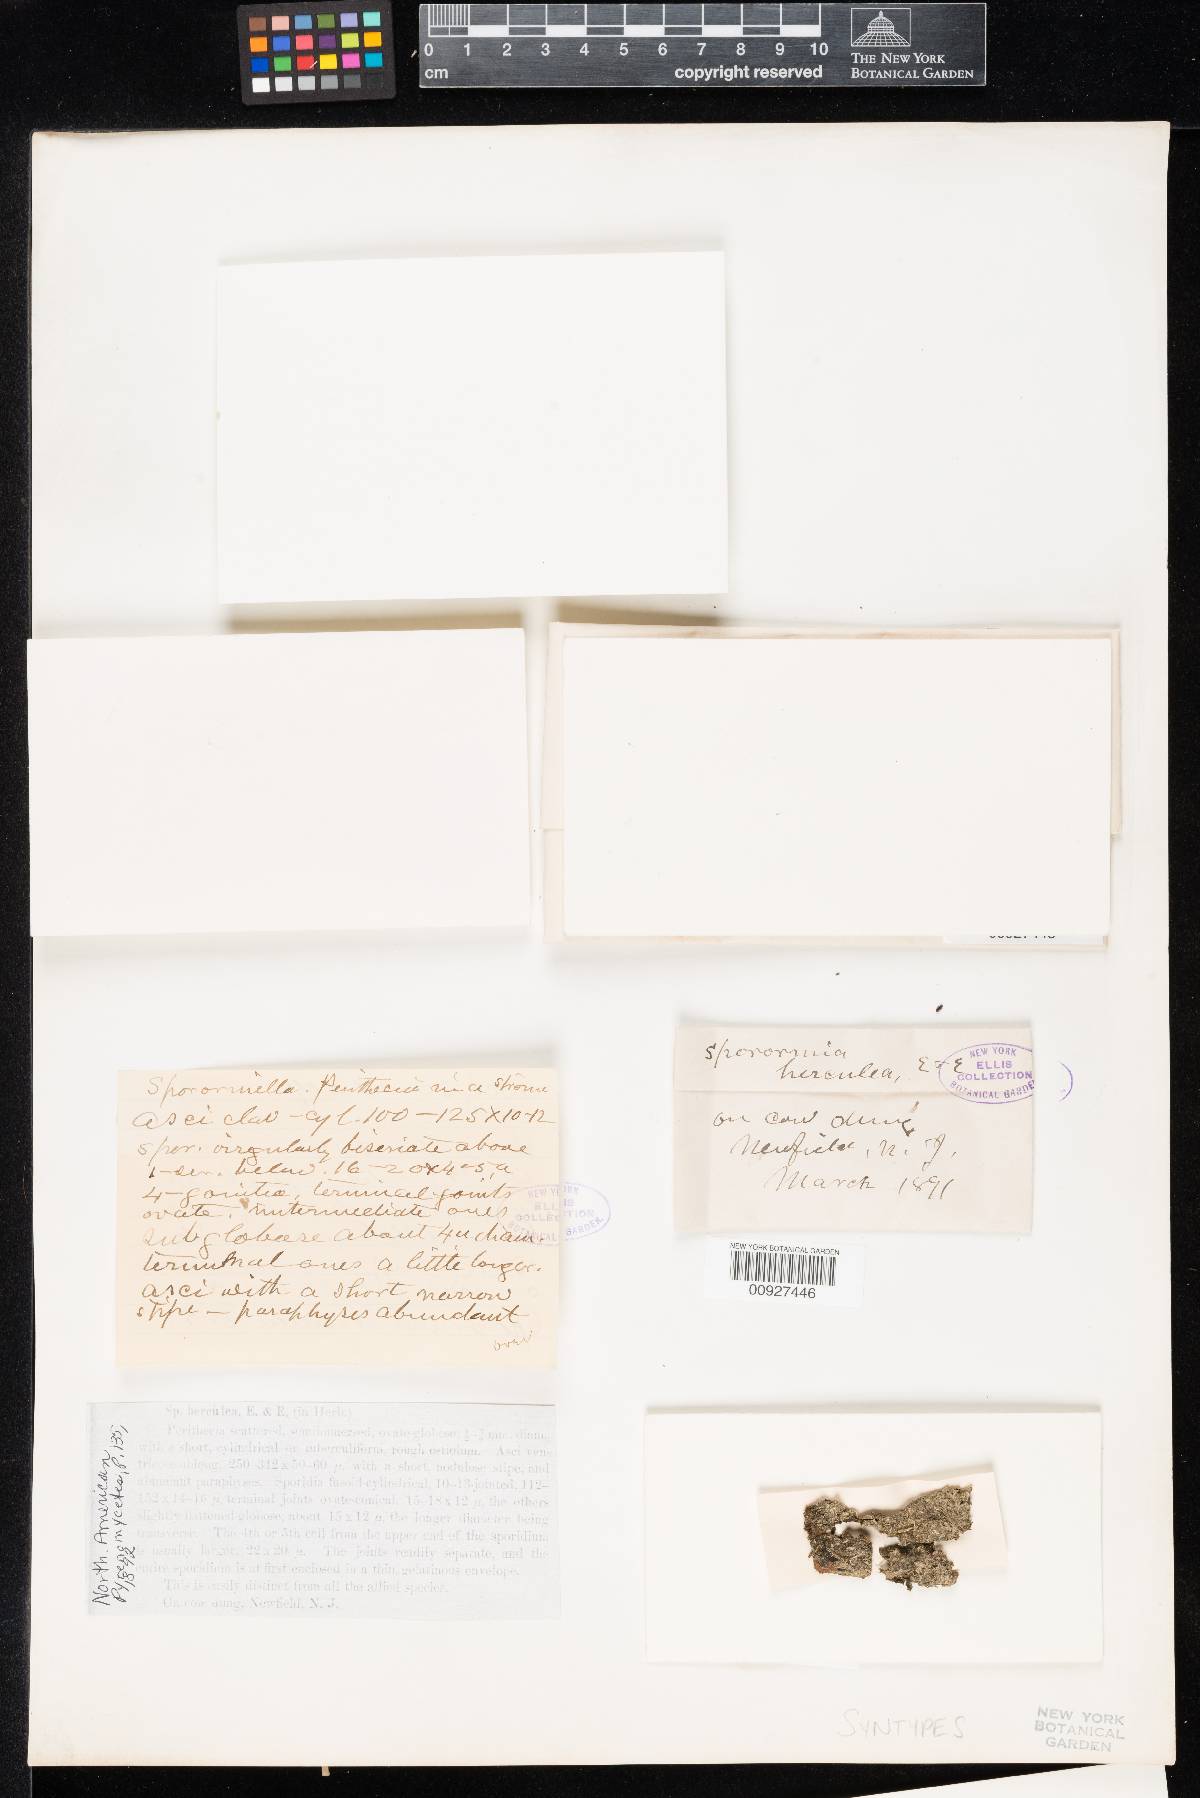 0 1 2 3 4 5 6 7 8 9 10
cm
copyright reserved
THE NEW YORK
BOTANICAL GARDEN
Sporormiella. Perithecia in a stroma
Asci clav-cyl. 100-125x10-12
spor. irregularly biseriate above
1-ser. below. 16-20x4-5 µ
4-jointed, terminal joints
ovate. intermediate ones
subglobose about 4µ diam.
terminal ones a little longer.
asci with a short narrow
stipe — paraphyses abundant
over
NEW YORK
ELLIS
COLLECTION
BOTANICAL GARDEN.
Sporormia
herculea, E & E
NEW YORK
ELLIS
COLLECTION
BOTANICAL GARDEN
on cow dung
Newfield, N. J.
March 1891
NEW YORK BOTANICAL GARDEN
00927446
North American
Pyrenomycetes, P. 135,
1892
Sp. herculea, E. & E. (in Herb.)
Perithecia scattered, semiimmersed, ovate-globose, diam.,
with a short, cylindrical or tuberculiform, rough ostiolum. Asci ven-
tricose-oblong, 250-312x50-60 µ, with a short, nodulose stipe, and
abundant paraphyses. Sporidia fusoid-cylindrical, 10-13-jointed, 112-
152x14-16 µ, terminal joints ovate-conical, 15-18x12 µ, the others
slightly flattened-globose, about 15x12 µ, the longer diameter being
transverse. The 4th or 5th cell from the upper end of the sporidium
is usually larger, 22x20 µ. The joints readily separate, and the
entire sporidium is at first enclosed in a thin, gelatinous envelope.
This is easily distinct from all the allied species.
On cow dung, Newfield, N. J.
SYNTYPES
NEW YORK
BOTANICAL
GARDEN